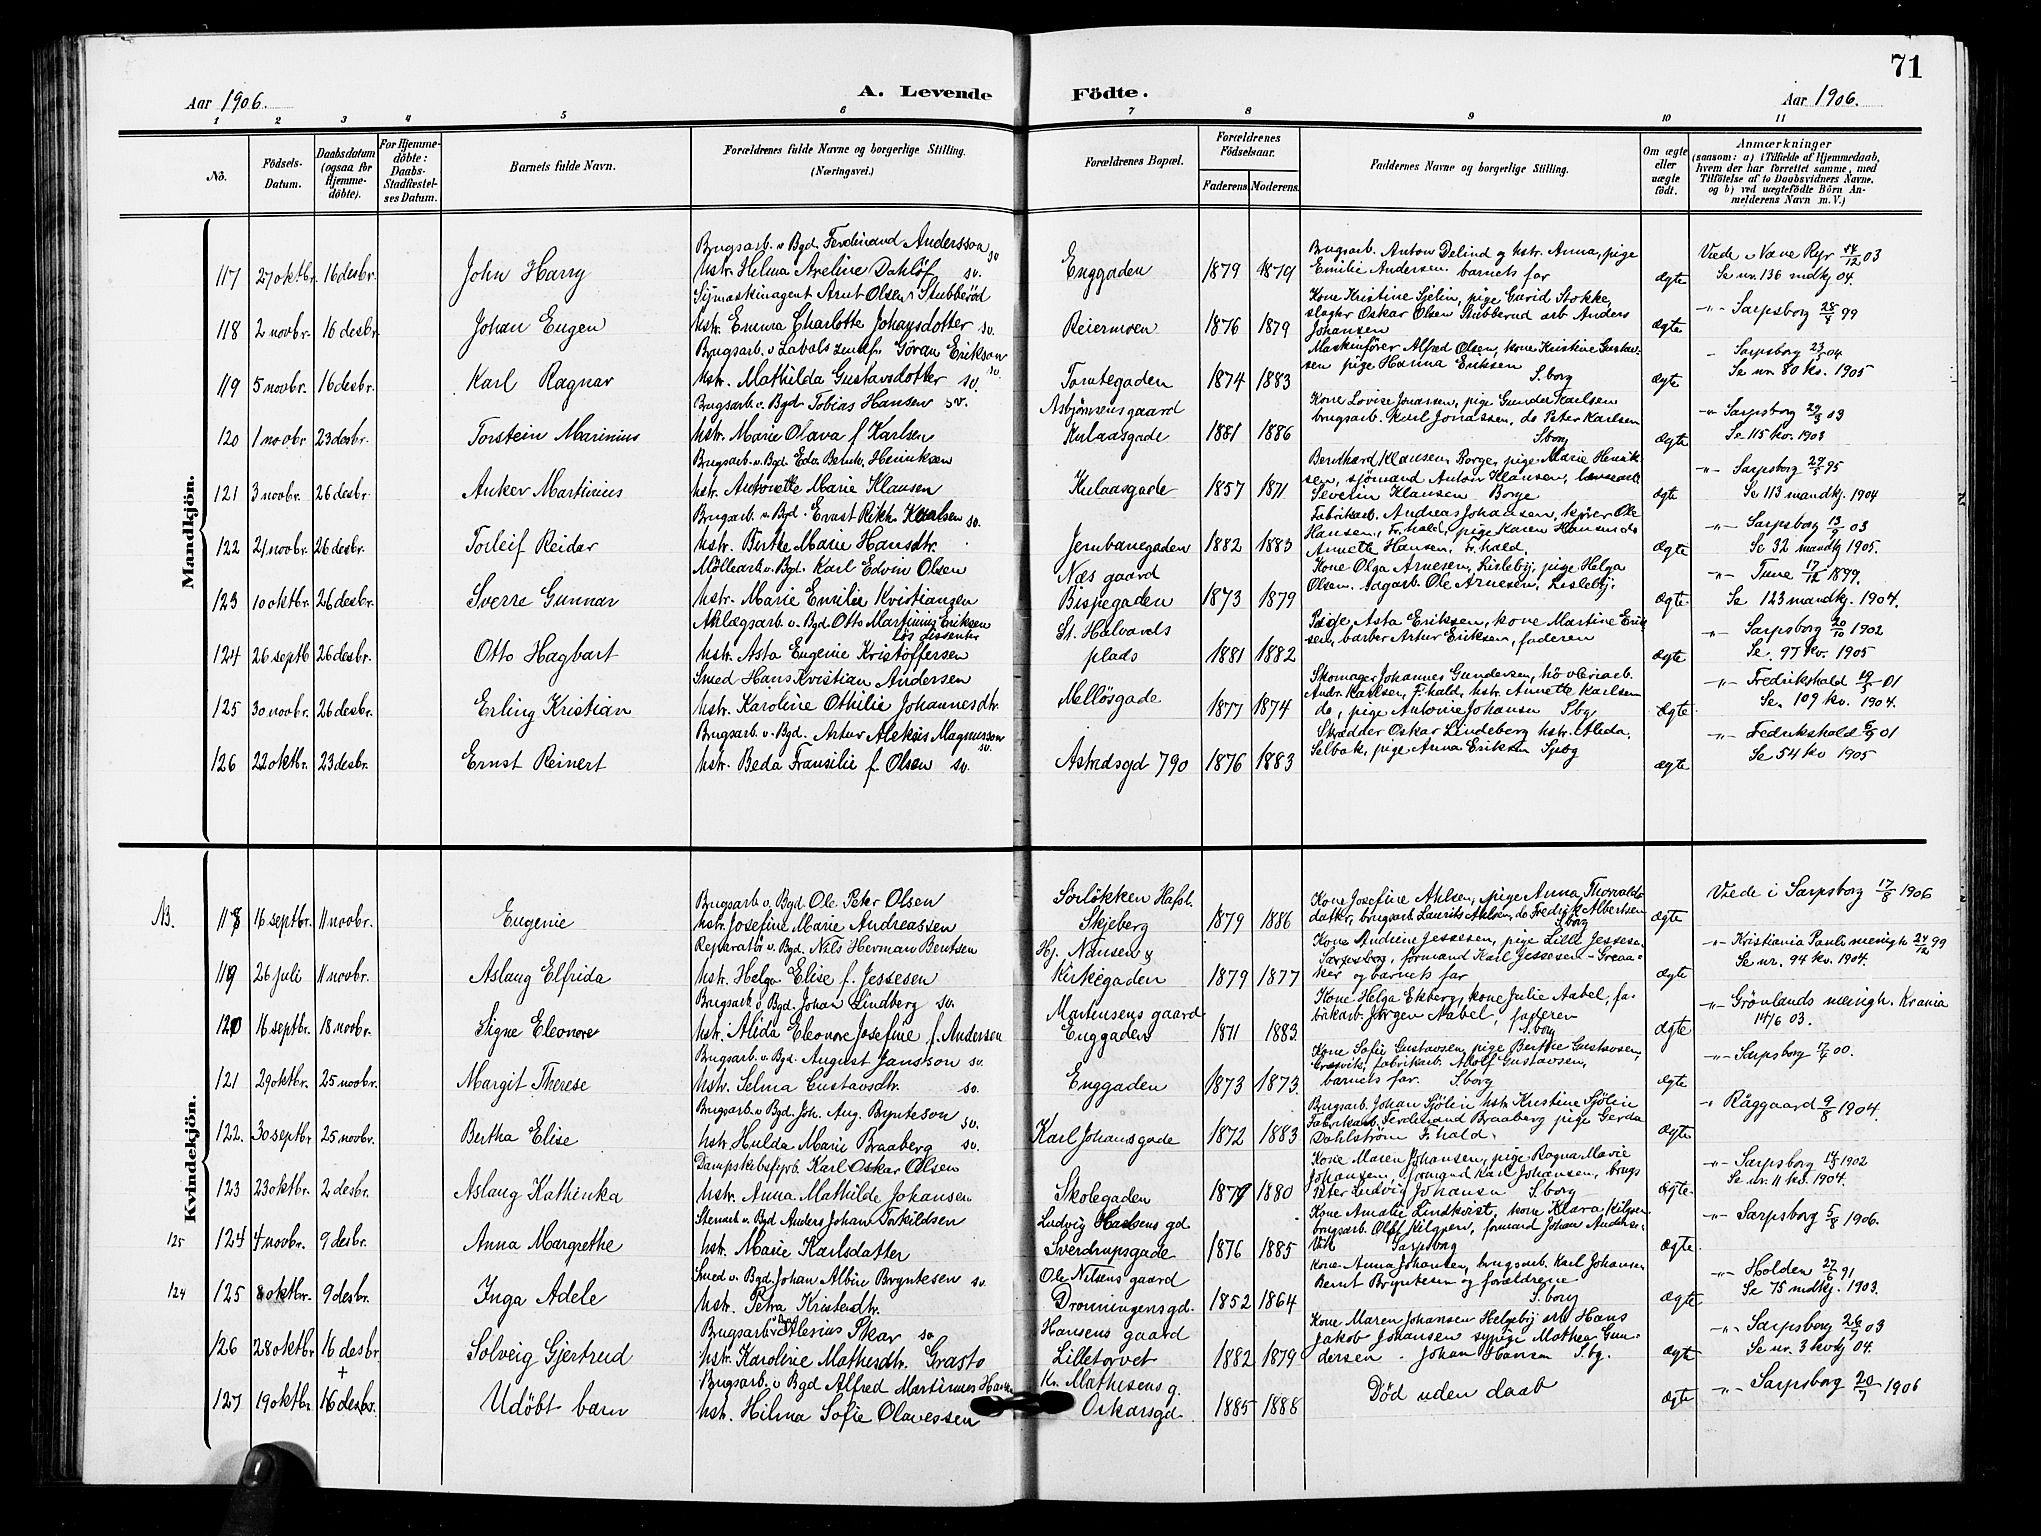 71
Aar 1906.
A. Levende Födte.
Aar 1906.
1 2 3 4 5 6 7 8 9 10 11
No.
Födsels-Datum.
Daabsdatum (ogsaa for Hjemme-döbte).
For Hjemme-döbte: Daabs-Stadfæstel-ses Datum.
Barnets fulde Navn.
Forældrenes fulde Navne og borgerlige Stilling. (Næringsvei.)
Forældrenes Bopæl.
Forældrenes Födselsaar.
Faderens. Moderens.
Faddernes Navne og borgerlige Stilling.
Om ægte eller uægte födt.
Anmærkninger
(saasom: a) i Tilfælde af Hjemmedaab, hvem der har forrettet samme, med Tilföielse af to Daabsvidners Navne, og b) ved uægtefödte Börn An-melderens Navn m. V.)
Mandkjön.
Brugsarb. v. Bgd. Ferdinand Andersson so
117 27 oktbr. 16 desbr. John Harry hstr. Helma Aveline Dahlöf so. Enggaden 1879 1879
Brugsarb. Anton Delind og hstr. Anna, pige
Emilie Andersen barnets far ægte
Viede i Næne Rejr 14/12 03
Se nr. 136 mndkj 04.
Symaskinagent Arnt Olsen Stubberöd
118 2 novbr. 16 desbr. Johan Eugen hstr. Emma Charlotte Johansdotter so. Reiermoen 1876 1879
Kone Kristine Sjelin, pige Gavid Stokke,
slagter Oskar Olsen Stubberud arb Anders
Johansen ægte
-"- Sarpsborg 28/4 99
Brugsarb. v Labols zenkf. Göran Erikson so.
119 5 novbr. 16 desbr. Karl Ragnar hstr. Mathilda Gustavsdotter so. Tomtegaden 1874 1883
Maskinförer Alfred Olsen, kone Kristine Gustav-
sen pige Hanna Eriksen S.borg ægte
" Sarpsborg 23/5 04
Se nr. 80 kv. 1905
Brugsarb. v. Bgd Tobias Hansen so.
120 1 novbr 23 desbr. Torstein Marinius hstr. Marie Olava f Karlsen Asbjörnsens gaard
Kulaasgade 1881 1886
Kone Lovise Jonassen, pige Gunda Karlsen
brugsarb. Karl Jonassen, do Peter Karlsen
S.borg ægte
-"- Sarpsborg 29/8 03
Se 115 kv. 1903
Brugsarb. v. Bgd. Edv. Bernh. Henriksen
121 3 novbr. 26 desbr. Anker Martinius hstr. Antonette Marie Klausen Kulaasgade 1857 1871
Bernhard Klausen, Borge, pige Marie Henrik-
sen, sjömand Anton Klausen, lænsearb
Severin Klausen Borge ægte
-"- Sarpsborg 29/5 95
Se 113 mandkj. 1904
Brugsarb. v. Bgd. Ernst Rikh. Karlsen so.
122 21 novbr. 26 desbr. Torleif Reidar hstr. Birthe Marie Hansdtr. Jernbanegaden 1882 1883
Fabrikarb. Andreas Johansen, kjöer Ole
Hansen, Fr.hald, pige Karen Hansen do
Annette Hansen, Fr.hald. ægte
-"- Sarpsborg 13/7 03
Se 32 mandkj 1905.
Möllearb. v. Bgd. Karl Edvin Olsen
123 10 oktbr. 26 desbr. Sverre Gunnar hstr. Marie Emilie Kristiansen Næs gaard
Bispegaden 1873 1879
Kone Olga Arnesen, Lisleby, pige Helga
Olsen. dagarb. Ole Arnesen. Lisleby. ægte
-"- Tune 17/12 1899.
Se 123 mandkj. 1904.
Anlægsarb. v. Bgd. Otto Martinius Eriksen
Lös dissenter
124 26 septb 26 desbr. Otto Hagbart hstr. Asta Eugenie Kristoffersen St. Halvards
plads 1881 1882
Pige Asta Eriksen, kone Martine Erik-
sen, barber Artur Eriksen, faderen ægte
-"- Sarpsborg 20/10 1902
Se 97 kv. 1905
Smed Hans Kristian Andersen
125 30 novbr. 26 desbr. Erling Kristian hstr. Karoline Othilie Johannesdtr. Mellösgade 1877 1874
Skomager Johannes Gundersen, hövleriarb.
Andr. Karlsen, F.hald, hstr. Annette Karlsen
do, pige Antonie Johansen Sbg. ægte
-"- Fredrikshald 19/5 01
Se 109 kv. 1904.
Brugsarb. v. Bgd. Artur Aleksis Magnusson so.
126 22 oktbr. 23 desbr. Ernst Reinert hstr. Beda Fransilie f. Olsen so. Astridsgd 790 1876 1883
Skrædder Oskar Lindeberg hstr. Alida,
Selbak, pige Anna Eriksen Spbg ægte
-"- Fredrikshald 6/9 01
Se 54 kv 1905
Kvindekjön.
NB.
Brugsarb v. Bgd. Ole Peter Olsen
118 16 septbr. 11 novbr. Eugenie hstr. Josefine Marie Andreassen Sörlökken Hafsl.
Skjeberg 1879 1886
Kone Josefine Ahlsen, pige Anna Thorvalds-
datter, brugsarb Laurits Ahlsen, do Fredrik Albertsen
S.borg ægte
Viede i Sarpsborg 17/8 1906
Reparatör v. Bgd. Nils Herman Berntsen
119 26 juli 11 novbr. Aslaug Elfrida hstr. Helga Elise f. Jessesen Hj. Nansen &
Kirkegaden 1879 1877
Kone Andrine Jessesen, pige Lilli Jessesen
Sarpsborg, formand Karl Jessesen - Greaa-
ker og barnets far ægte
-"- Kristiania Pauls menigh 24/12 99
Se nr. 94 kv. 1904.
Brugsarb v Bgd. Johan Lindberg so.
120 16 septbr. 18 novbr. Signe Eleonore hstr. Alida Eleonore Josefine f. Andersen Martinsens gaard
Enggaden 1871 1883.
Kone Helga Ekberg, kone Julie Aabel, fa-
brikarb. Jörgen Aabel, faderen
S.borg ægte
-"- Grönlands menigh. Krania
14/6 03.
Brugsarb. v. Bgd. August Jansson so.
121 29 oktbr. 25 novbr. Margit Therese hstr. Selma Gustavsdtr. so. Enggaden 1873 1873.
Kone Sofie Gustavsen, pige Berthe Gustavsen,
Græsvik, fabrikarb. Adolf Gustavsen,
barnets far. S.borg ægte
-"- Sarpsborg 17/6 00.
Brugsarb. v Bgd. Joh. Aug. Bynteson so.
122. 30 septbr 25 novbr. Bertha Elise hstr. Hulda Marie Braaberg so. Karl Johansgade 1872 1883
Brugsarb. Johan Sjölin hstr. Kristine Sjölin
Fabrikarb. Ferdinand Braaberg pige Gerda
Dahlström F.hald. ægte
" Råggaard 9/8 1904.
Dampskibsfyrb. Karl Oskar Olsen
123 23 oktbr. 2 desbr. Aslaug Kathinka hstr. Anna Mathilde Johansen Skolegaden 1879 1880
Kone Maren Johansen, pige Ragna Marie
Johansen, formand Karl Johansen, brugs
Peter Ludvig Johansen S.borg ægte.
-"- Sarpsborg 17/5 1902
Se nr. 11 kv. 1904.
Stenarb v. Bgd Anders Johan Torkildsen
125 124 4 novbr. 9 desbr. Anna Margrethe hstr. Marie Karlsdatter Ludvig Hansens gd
Sverdrupsgade 1876 1885
Kone Amalie Lindkvist, kone Klara Kilgren
brugsarb. Olof Kilgren, formand Johan Anders-
Sarpsborg ægte
-"- Sarpsborg 5/8 1906.
Smed v. Bgd. Johan Albin Bryntesen so.
124 125 8 oktbr. 9 desbr. Inga Adele hstr. Petra Kristensdtr. Ole Nilsens gaard
Dronningensgd. 1852 1864
Kone Anna Johansen, brugsarb. Karl Johansen
Bernt Bryntesen og forældrene
S.borg ægte
-"- Holden 27/6 91
Se 75 mdkj. 1903.
Brugsarb v Bgd Alerius Skar so
126 28 oktbr 16 desbr Solveig Gjertrud hstr. Karoline Mathisdtr. Grasto Hansens gaard
Lilletorvet 1882 1879
Kone Maren Johansen Helgeby arb Hans
Jakob Johansen sypige Mathea Gun-
dersen. Johan Hansen S.bg. ægte
-"- Sarpsborg 26/7 03
Se nr. 3 kvkj 04.
+
Brugsarb. v. Bgd Alfred Martinius Hansen
127 19 oktbr. 16 desbr. Udöbt barn hstr. Hilma Sofie Olavessen Kr. Mathisens g.
Oskarsgd. 1885 1888
Död uden daab ægte
-"- Sarpsborg 20/7 1906